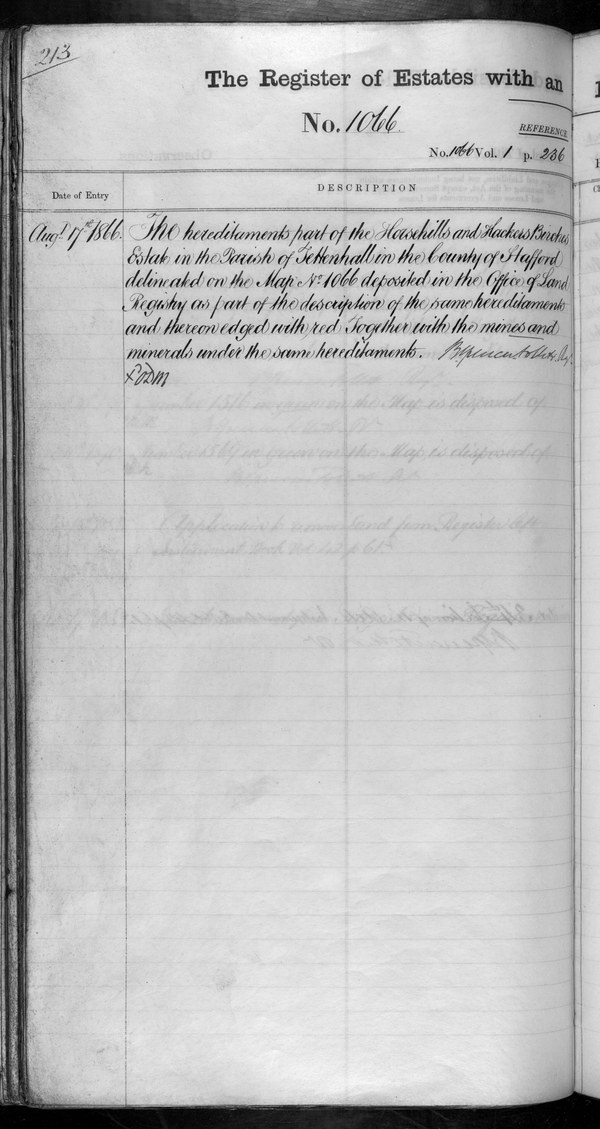 213
The Register of Estates with an
No. 1066.
REFERENCE
No. 1066 Vol. 1 p. 236
Date of Entry
DESCRIPTION
Augt 17th 1866.
The hereditaments part of the Horsehills and Hackers Birches
Estate in the Parish of Tettenhall in the County of Stafford
delineated on the Map No. 1066 deposited in the Office of Land
Registry as part of the description of the same hereditaments
and thereon edged with red Together with the mines and
minerals under the same hereditaments.